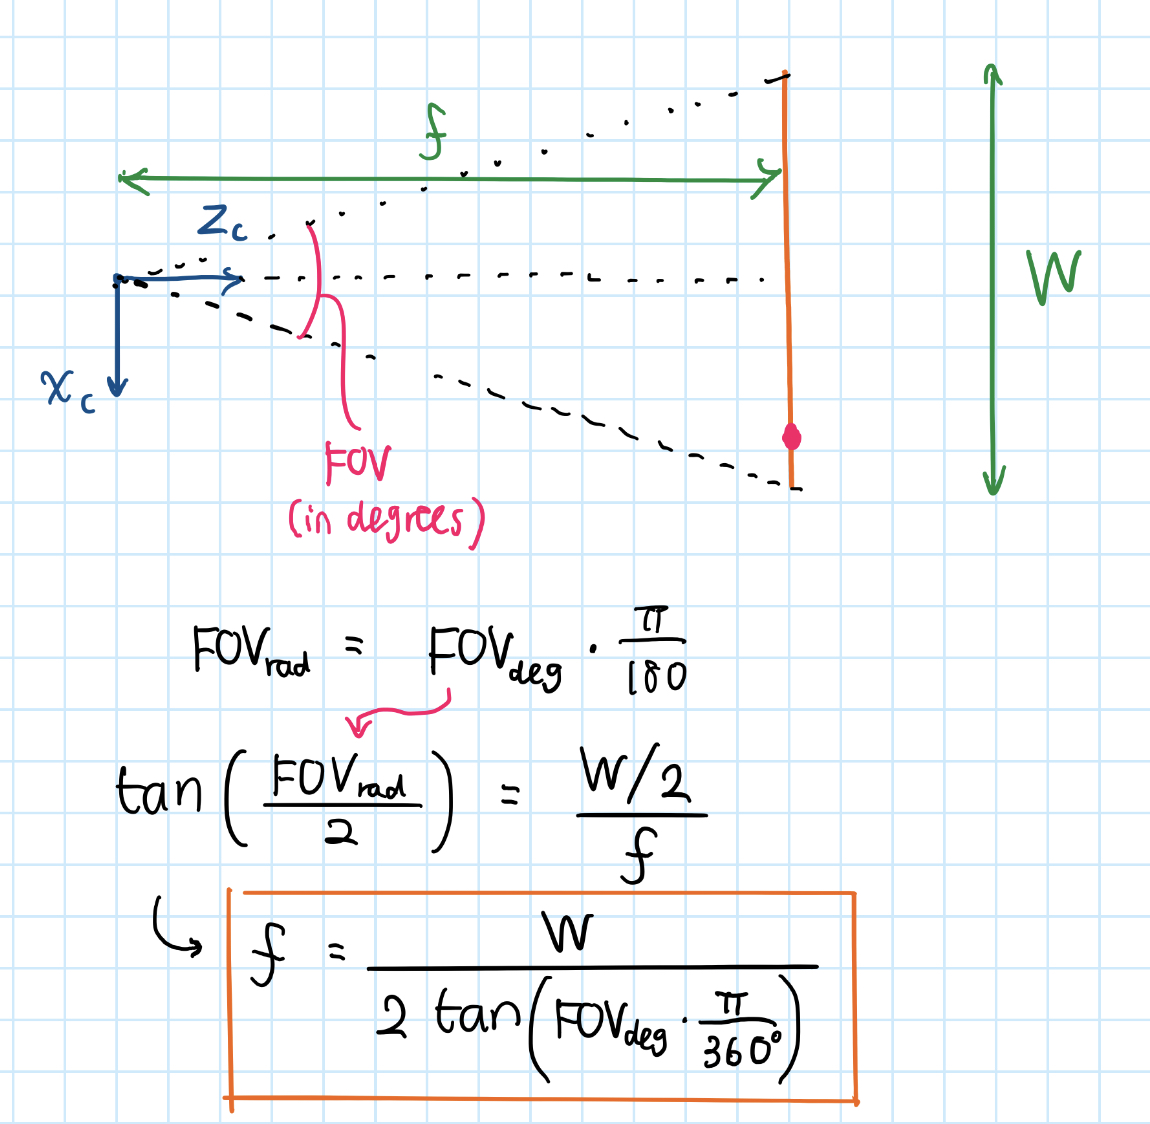 f
Z_c
W
X_c
FOV
(in degrees)
FOV_rad = FOV_deg · π/180
tan(FOV_rad/2) = (W/2)/f
f = W/(2 tan(FOV_deg · π/360°))